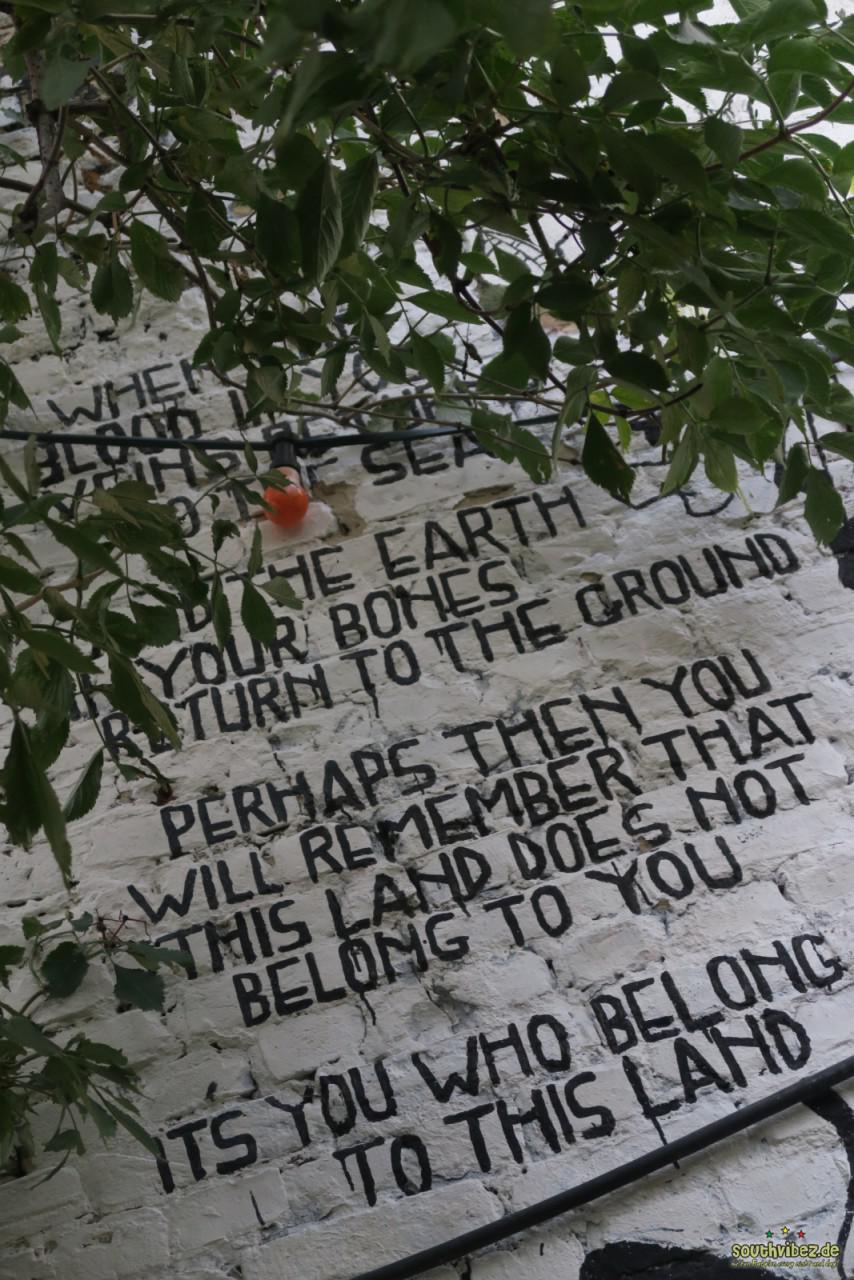 WHEN
BLOOD
SEA
THE EARTH
YOUR BONES
RETURN TO THE GROUND
PERHAPS THEN YOU
WILL REMEMBER THAT
THIS LAND DOES NOT
BELONG TO YOU
ITS YOU WHO BELONG
TO THIS LAND
southvibez.de